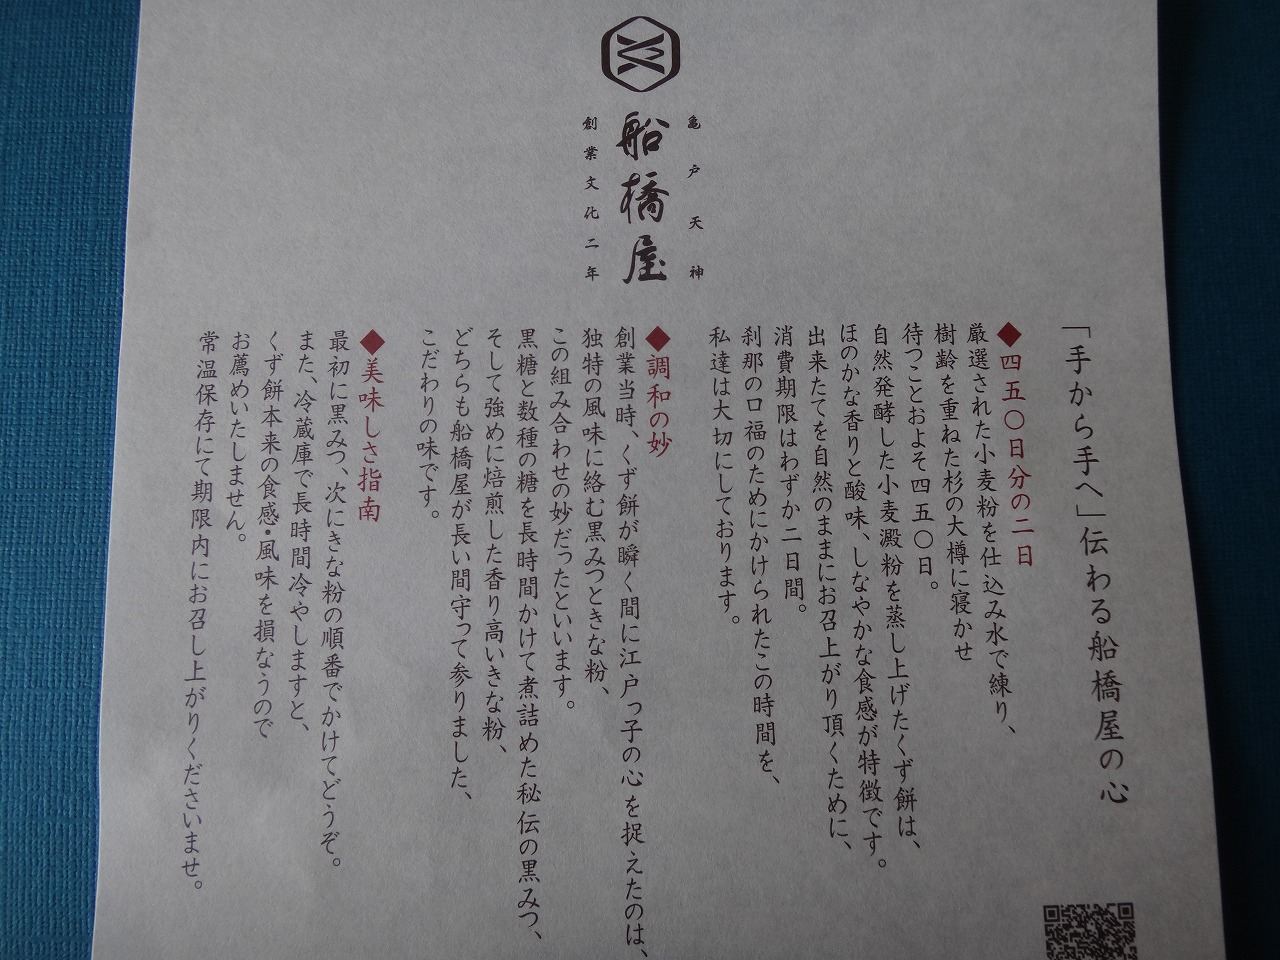 亀戸天神
船橋屋
創業文化二年
「手から手へ」伝わる船橋屋の心
◆四五〇日分の二日
厳選された小麦粉を仕込み水で練り、
樹齢を重ねた杉の大樽に寝かせ
待つことおよそ四五〇日。
自然発酵した小麦澱粉を蒸し上げたくず餅は、
ほのかな香りと酸味、しなやかな食感が特徴です。
出来たてを自然のままにお召上がり頂くために、
消費期限はわずか二日間。
刹那の口福のためにかけられたこの時間を、
私達は大切にしております。
◆調和の妙
創業当時、くず餅が瞬く間に江戸っ子の心を捉えたのは、
独特の風味に絡む黒みつときな粉、
この組み合わせの妙だったといいます。
黒糖と数種の糖を長時間かけて煮詰めた秘伝の黒みつ、
そして強めに焙煎した香り高いきな粉、
どちらも船橋屋が長い間守って参りました、
こだわりの味です。
◆美味しさ指南
最初に黒みつ、次にきな粉の順番でかけてどうぞ。
また、冷蔵庫で長時間冷やしますと、
くず餅本来の食感・風味を損なうので
お薦めいたしません。
常温保存にて期限内にお召し上がりくださいませ。